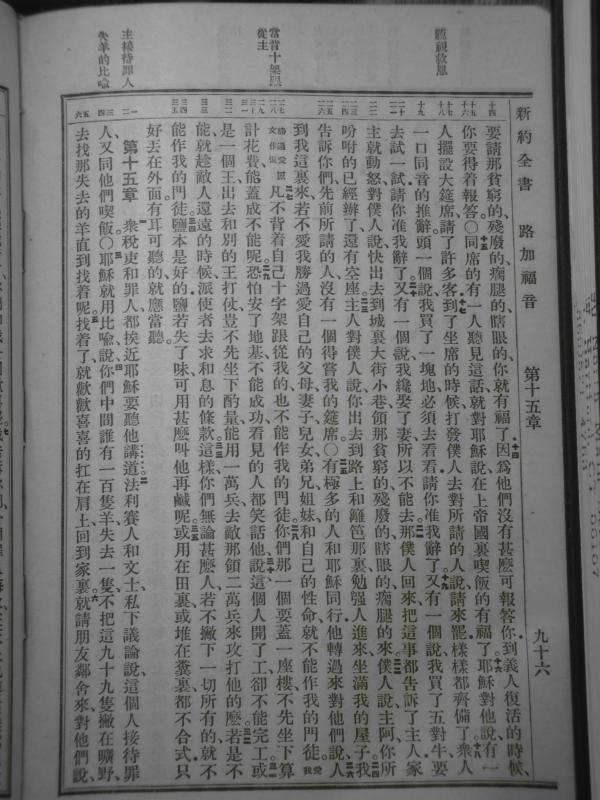 新約全書 路加福音 第十五章 九十六
藐視救恩
當背十架跟從主
主接待罪人
失羊的比喻
十四 十五 十六 十七 十八 十九 二十 二一 二二 二三 二四 二五 二六 二七 二八 二九 三十 三一 三二 三三 三四 三五 一 二 三 四 五 六
要請那貧窮的、殘廢的、瘸腿的、瞎眼的、你就有福了、因爲他們沒有甚麼可報答你、到義人復活的時候、
你要得着報答。○同席的有一人聽見這話、就對耶穌說、在上帝國裏喫飯的有福了。耶穌對他說、有一
人擺設大筵席、請了許多客。到了坐席的時候、打發僕人去對所請的人說、請來罷、樣樣都齊備了。衆人
一口同音的推辭、頭一個說、我買了一塊地、必須去看看、請你准我辭了。又有一個說、我買了五對牛、要
去試一試、請你准我辭了。又有一個說、我纔娶了妻、所以不能去。那僕人回來、把這事都告訴了主人、家
主就動怒、對僕人說、快出去到城裏大街小巷、領那貧窮的、殘廢的、瞎眼的、瘸腿的來。僕人說、主阿、你所
吩咐的已經辦了、還有空座。主人對僕人說、你出去到路上和籬笆那裏、勉強人進來、坐滿我的屋子。我
告訴你們、先前所請的人、沒有一個得嘗我的筵席。○有極多的人和耶穌同行、他轉過來對他們說、人
到我這裏來、若不愛我勝過愛自己的父母、妻子、兒女、弟兄、姐妹、和自己的性命、就不能作我的門徒。愛我
勝過愛原文作恨 凡不背着自己十字架跟從我的、也不能作我的門徒。你們那一個要蓋一座樓、不先坐下算
計花費、能蓋成不能呢。恐怕安了地基、不能成功、看見的人都笑話他、說、這個人開了工、卻不能完工。或
是一個王、出去和別的王打仗、豈不先坐下酌量、能用一萬兵、去敵那領二萬兵來攻打他的麼。若是不
能、就趁敵人還遠的時候、派使者去求和息的條款。這樣、你們無論甚麼人、若不撇下一切所有的、就不
能作我的門徒。鹽本是好的、鹽若失了味、可用甚麼叫他再鹹呢。或用在田裏、或堆在糞裏、都不合式、只
好丟在外面。有耳可聽的、就應當聽。
第十五章 衆稅吏和罪人、都挨近耶穌要聽他講道。法利賽人和文士、私下議論說、這個人接待罪
人、又同他們喫飯。○耶穌就用比喻、說、你們中間誰有一百隻羊、失去一隻、不把這九十九隻撇在曠野、
去找那失去的羊直到找着呢。找着了、就歡歡喜喜的扛在肩上、回到家裏。就請朋友鄰舍來、對他們說、